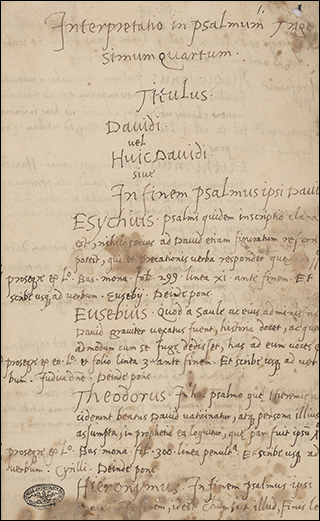 Interpretatio in psalmum Trige
simum quartum.
Titulus.
Davidi.
vel
Huic Davidi.
sive
In finem psalmus ipsi Davi
Esychius. psalmi quidem inscriptio clara
est, nihilo secus ad David etiam
poterit, qui et precationis verba respondet que
Bas. mona. fol. 299. linea XI. ante finem. Et
scribe usq. ad verbum. Euseby. Deinde pone
Eusebius. Quod a Saule
David graviter vexatus fuerit, historia docet, ac que
admodum cum se fugae dedisset, has ad eum voces
folio linea 3. ante finem. Et scribe usq. ad ver
bum. Iudica Deinde pone
Theodorus. In hoc psalmo que Hieremi
ciderunt beatus David vaticinatur, atq. persona illius
assumpta, in propheta ea loquitur, que par fuit ipsu
Bas. mona fol. 300. linea penult. Et scribe usq. ad
verbum. Cyrilli. Deinde pone
Hieronymus. In finem psalmus ipsi
finem, idest Christum, et illud, Finis le